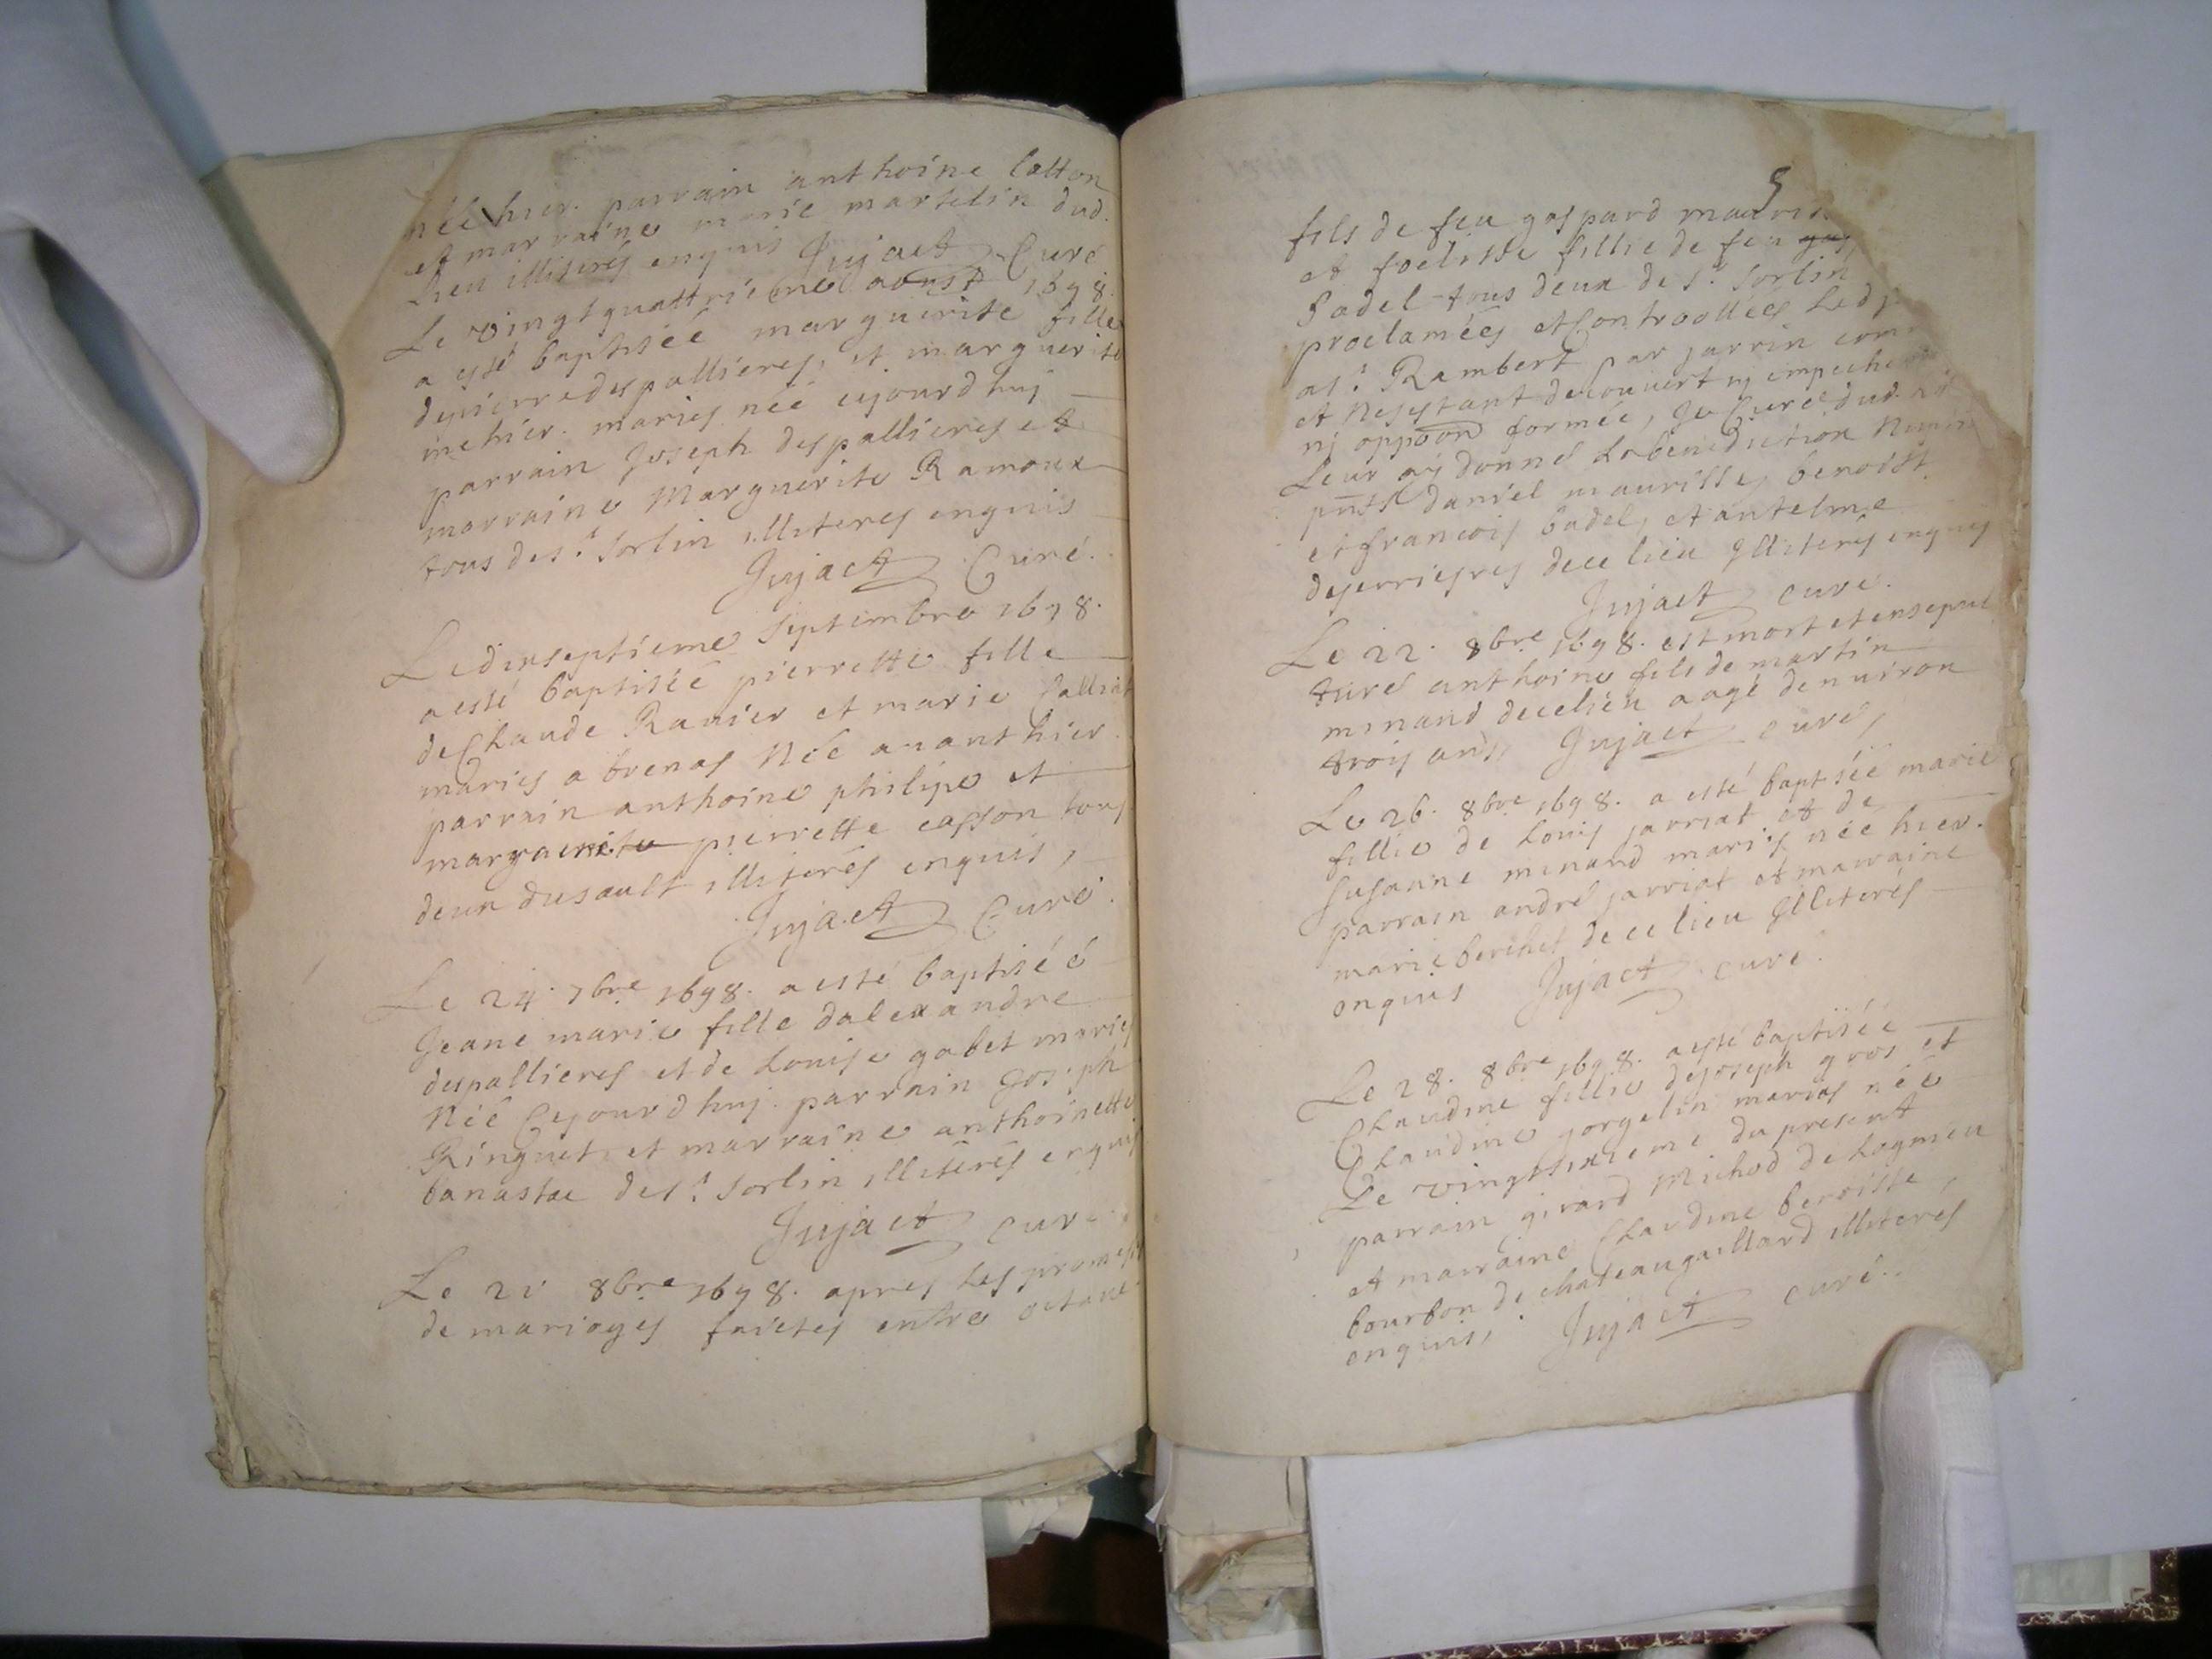 née hier. parrain anthoine Cotton
et marraine marie martelin dud.
Lieu illiterés enquis Jujact Curé
Le vingtquattrieme aoust 1698.
a esté baptisée marguerite fille
depierre despallieres, et marguerite
inehier. maries née cejourdhuj
parrain Joseph despallieres et
marraine Marguerite Ramoux
tous de st Sorlin illiteres enquis
Jujact Curé.
Ledixseptieme Septembre 1698.
a esté baptisée pierrette fille
de Claude Ravier et marie
maries a brenas Née auanthier
parrain anthoine philipe et
marraine pierrette casson tous
deux dusault illiterés enquis,
Jujact Curé.
Le 24. 7bre 1698. a esté baptisée
Jeane marie fille dalexandre
despallieres et de Louise gabet maries
Née Cejourdhuj. parrain Joseph
Ringuet et marraine anthoinette
banastae de st Sorlin illiterés enquis
Jujact curé
Le 21 8bre 1698. apres les promess
de mariages faictes entre octaue
5
fils de feu gaspard mauris
et foelisse fillie de feu gas
badel tous deux de st Sorlin
proclamées et Controollées Led j
a st Rambert par jarrin com
et Nesestant decouuert nj empeche
nj oppoon formée, Je Curé dud.
Leur aj donné Labenediction Nup
pnts daniel maurisse, benoist
et francois badel, et antelme
deserriesres dece lieu Illiterés enquis
Jujact curé.
Le 22. 8bre 1698. est mort et ensepul
turé anthoine fils de martin
minand decelieu aagé denuiron
trois ans, Jujact curé,
Le 26. 8bre 1698. a esté baptisée marie
fillie de Louis jarriat et de
Susanne minand maris née hier.
parrain andré jarriat et marraine
marie berchet de ce lieu Illiterés
enquis Jujact curé.
Le 28. 8bre 1698. a esté baptisée
Claudine fillie deJoseph gros et
Claudine gorgelin mariés née
Le vingtsixieme du present
parrain girard Michod de Lagnieu
et marraine Claudine beroisse,
bourbon de chateaugaillard illiteres
enquis, Jujact curé.